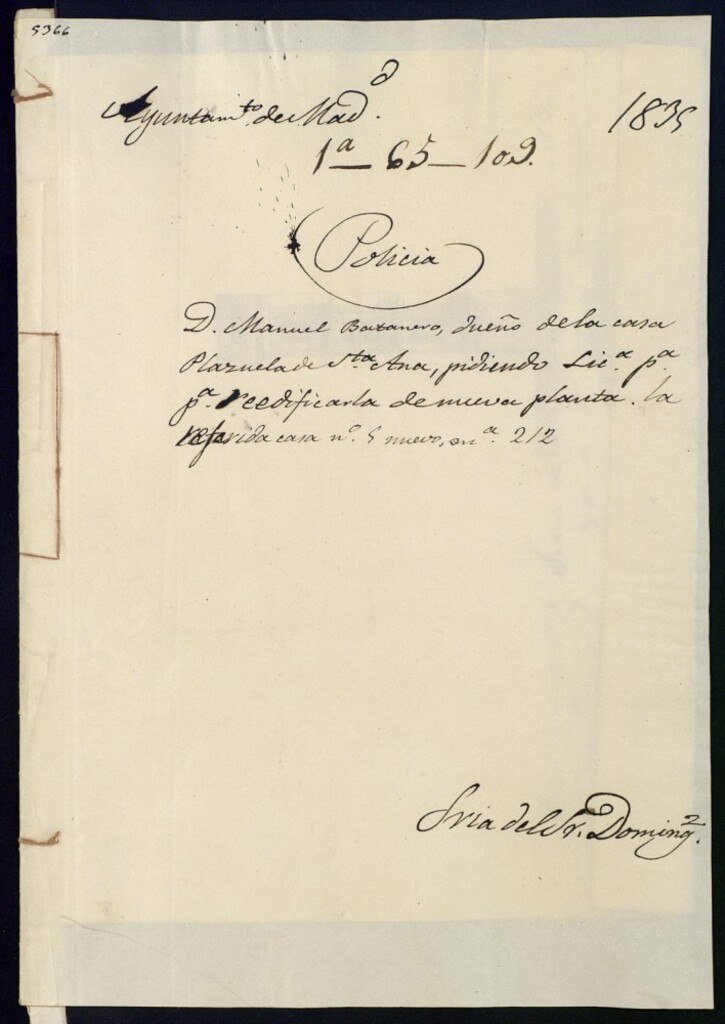 5366
Ayuntam.to de Mad.d
1835
1a — 65 — 109.
Policia
D. Manuel Bazanero, dueño de la casa
Plazuela de Sta Ana, pidiendo Lic.a p.a
p.a reedificarla de nueva planta. la
referida casa n.o 5 nuevo, m.a 212
Sria del Sr. Doming.z